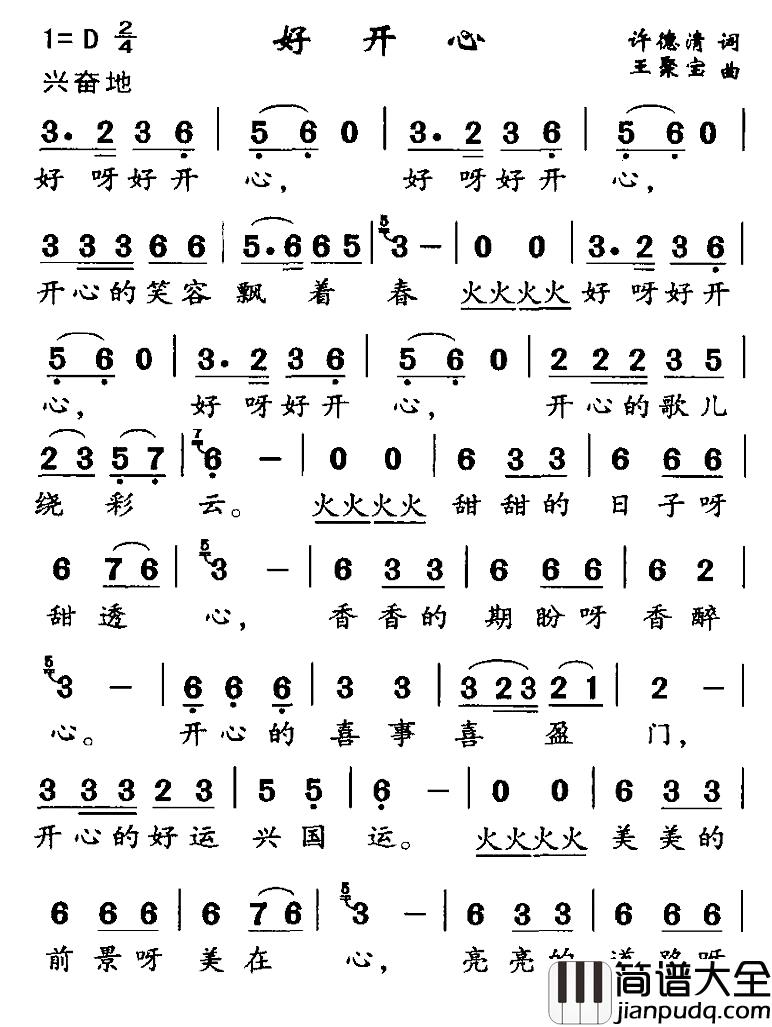 1= D 2/4 好开心 许德清 词
兴奋地 王聚宝 曲
3. 2 3 6 | 5 6 0 | 3. 2 3 6 | 5 6 0 |
好 呀好开 心, 好 呀好开 心,
3 3 3 6 6 | 5. 6 6 5 | 5 3 – | 0 0 | 3. 2 3 6 |
开心的笑容 飘 着 春 火火火火 好 呀好开
5 6 0 | 3. 2 3 6 | 5 6 0 | 2 2 2 3 5 |
心, 好 呀好开 心, 开心的歌儿
2 3 5 7 | 7 6 – | 0 0 | 6 3 3 | 6 6 6 |
绕 彩 云。 火火火火 甜 甜的 日 子呀
6 7 6 | 5 3 – | 6 3 3 | 6 6 6 | 6 2 |
甜 透 心, 香 香的 期 盼呀 香醉
5 3 – | 6 6 6 | 3 3 | 3 2 3 2 1 | 2 – |
心。 开心的 喜事 喜 盈 门,
3 3 3 2 3 | 5 5 | 6 – | 0 0 | 6 3 3 |
开心的好运 兴国 运。 火火火火 美 美的
6 6 6 | 6 7 6 | 5 3 – | 6 3 3 | 6 6 6 |
前 景呀 美 在 心, 亮 亮的
简谱大全
jianpudq.com